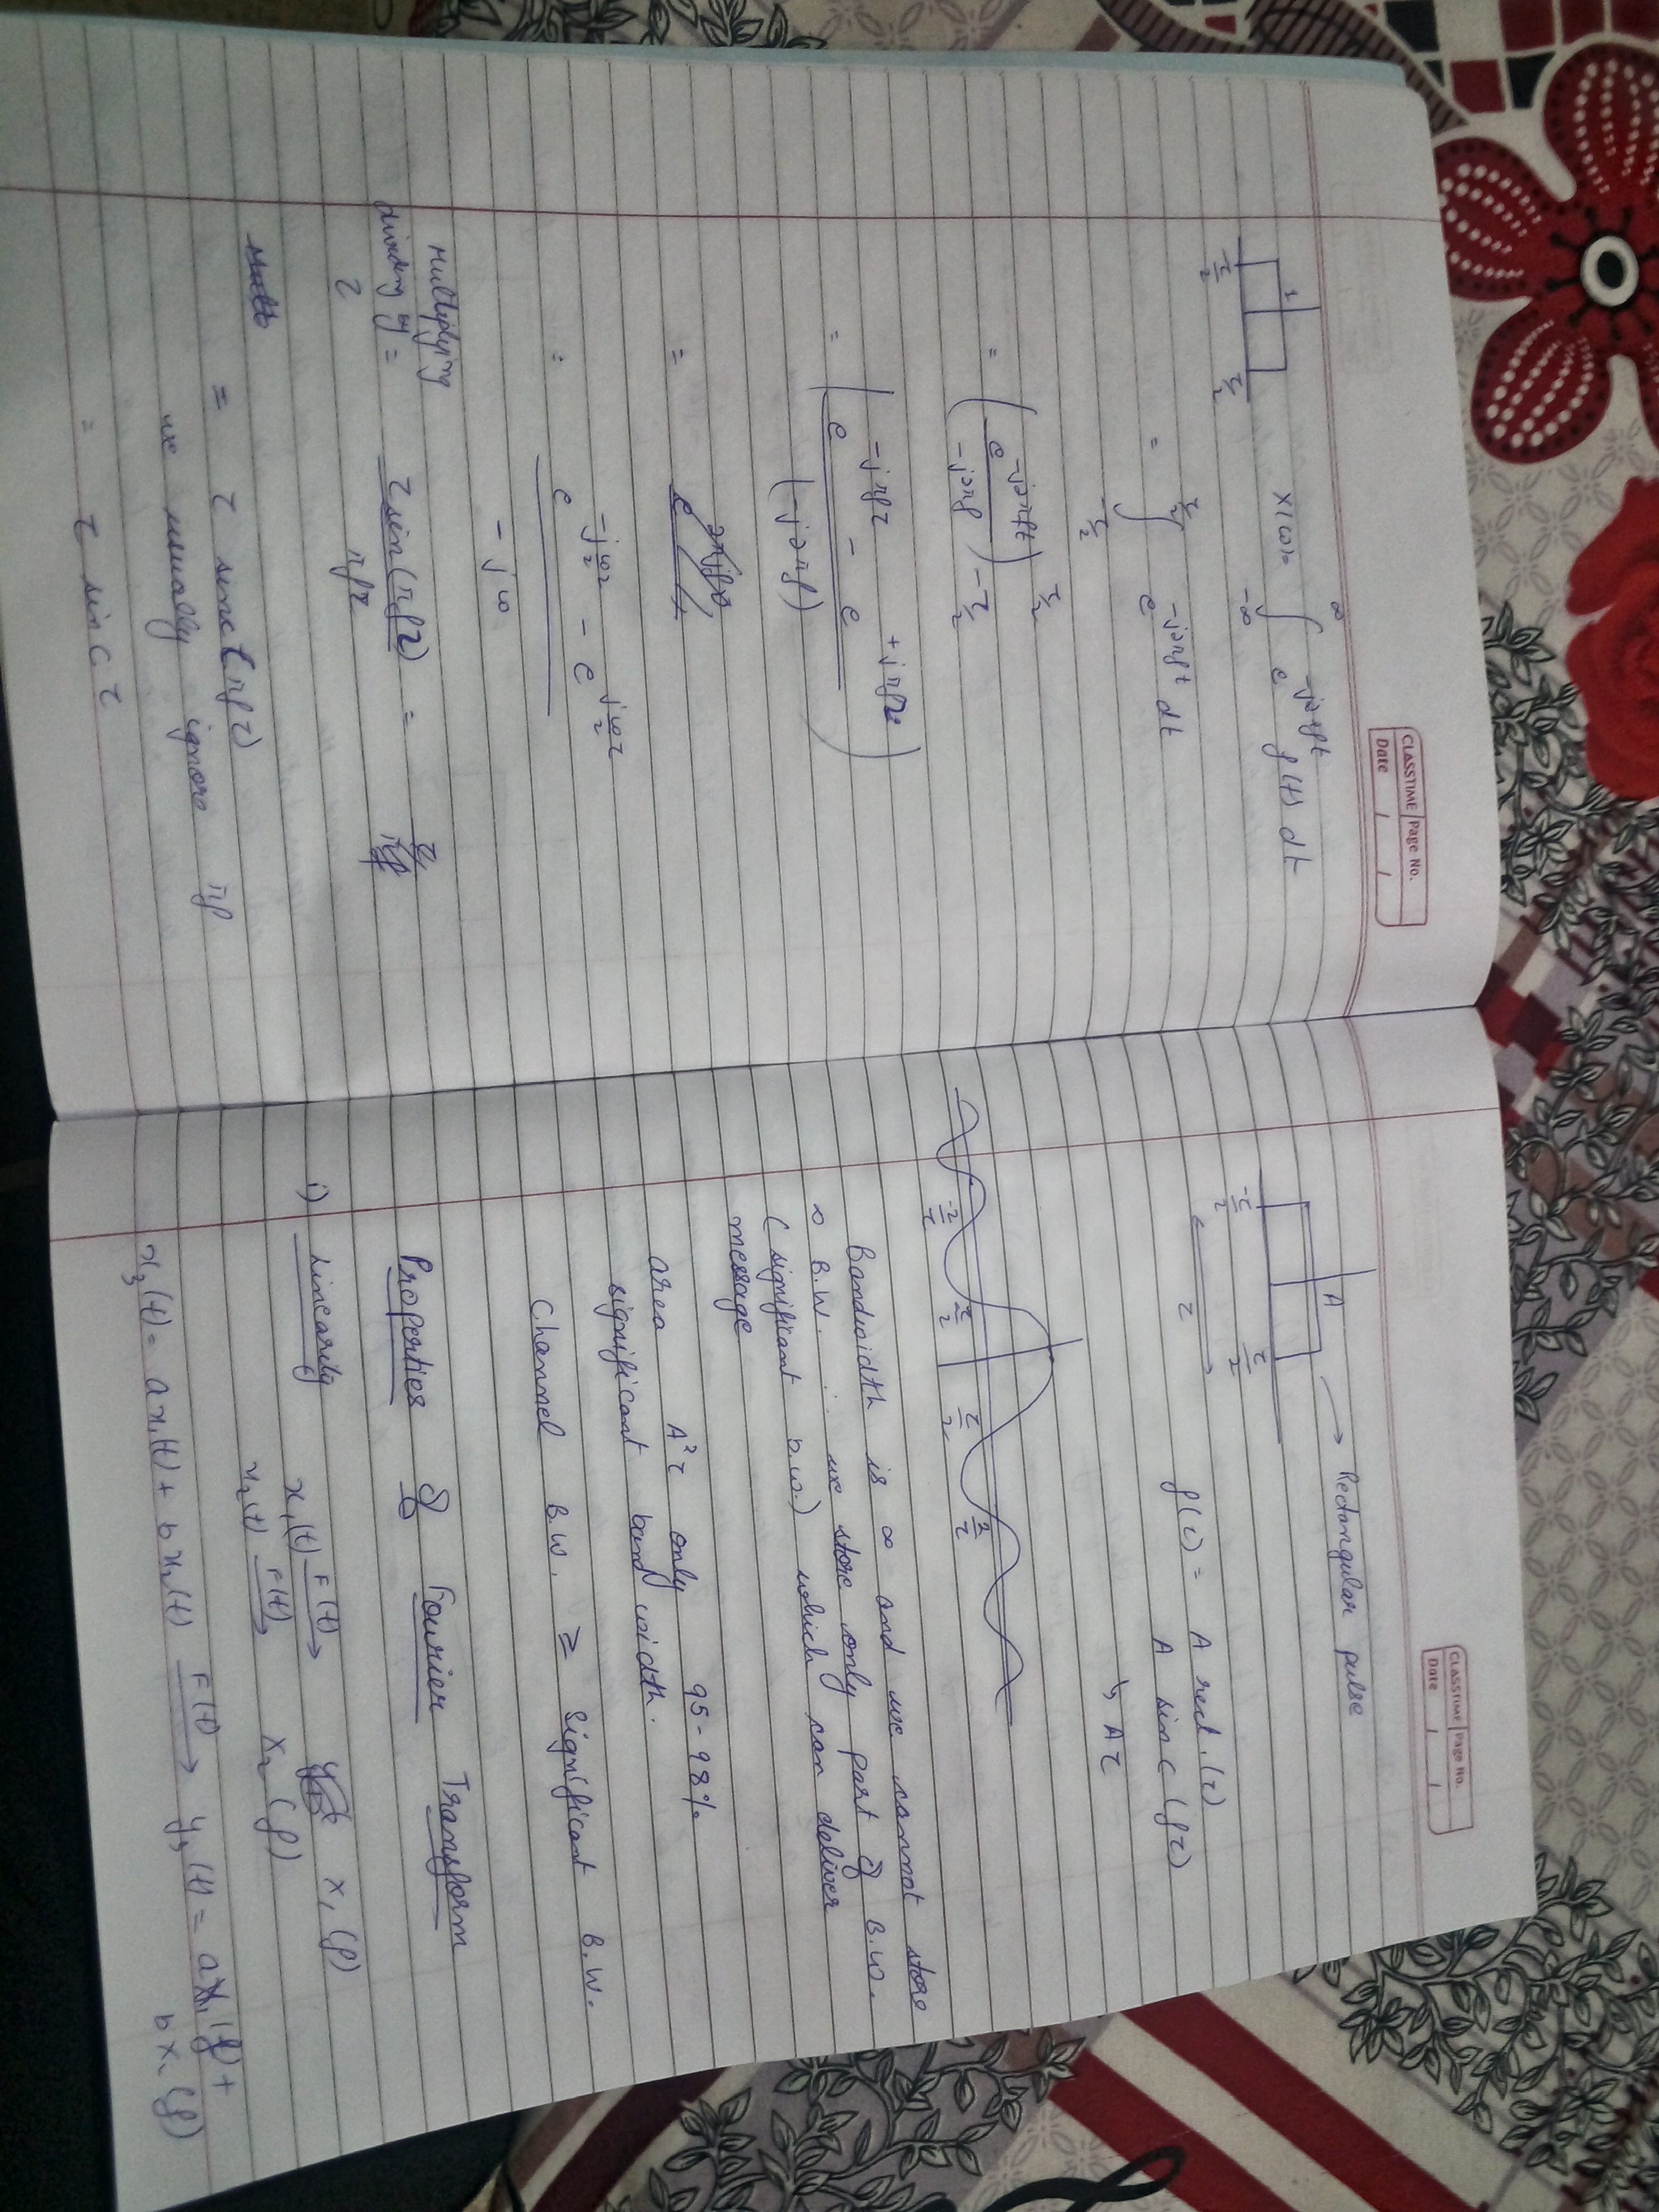 CLASSTIME Page No.
Date / /
1
-τ/2 τ/2
X(ω) = ∫_{-∞}^{∞} e^{-j2πft} f(t) dt
= ∫_{-τ/2}^{τ/2} e^{-j2πft} dt
= (e^{-j2πft} / -j2πf)_{-τ/2}^{τ/2}
= (e^{-jπfτ} - e^{+jπfτ} / (-j2πf))
=
= e^{-jωτ/2} - e^{jωτ/2} / -jω
Multiplying
dividing by = τ sin(πfτ) / πfτ =
τ
= τ sinc (πfτ)
we usually ignore πf
= τ sinc τ
CLASSTIME Page No.
Date / /
A → Rectangular pulse
-τ/2 τ/2
τ
f(τ) = A rect.(τ)
A sinc (fτ)
↳ Aτ
Bandwidth is ∞ and we cannot store
∞ B.W. ∴ we store only part of B.W.
(significant b.w.) which can deliver
message
area A²τ only 95-98%
significant band width.
Channel B.W. ≥ Significant B.W.
Properties of Fourier Transform
i) Linearity x₁(t) F(t)→ X₁(f)
x₂(t) F(t)→ X₂(f)
x₃(t) = a x₁(t) + b x₂(t) F(t)→ y₃(t) = aX₁(f) +